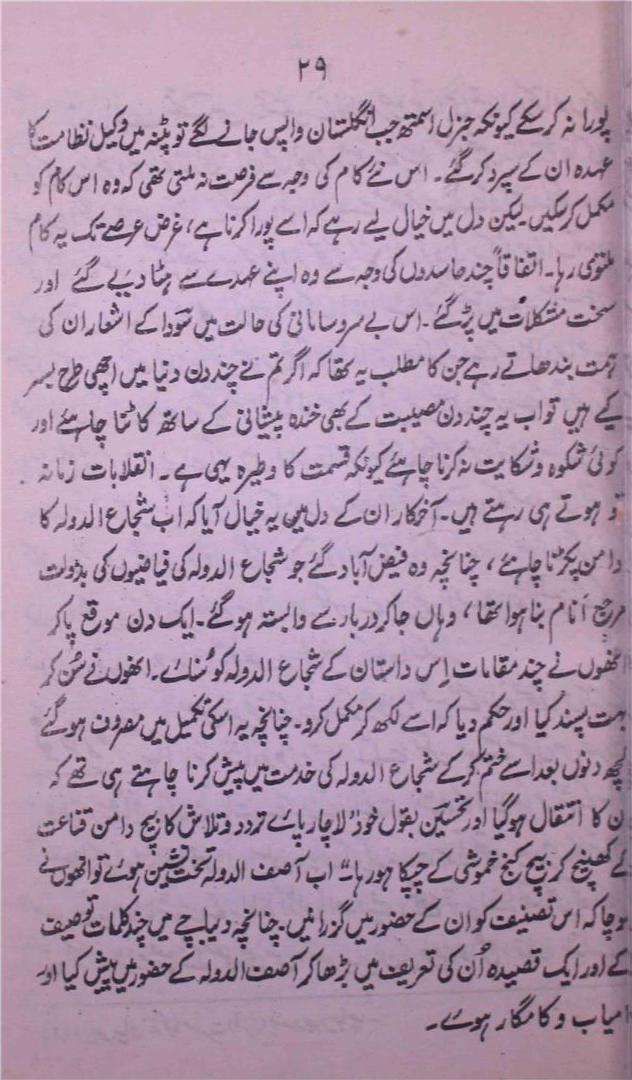 ۲۹
پورا نہ کر سکے کیونکہ جنرل اسمتھ جب انگلستان واپس جانے لگے تو پٹنہ میں وکیل نظامت کا
عہدہ ان کے سپرد کر گئے۔ اس نئے کام کی وجہ سے فرصت نہ ملتی تھی کہ وہ اس کام کو
مکمل کر سکیں لیکن دل میں خیال لیے رہے کہ اسے پورا کرنا ہے، غرض عرصے تک یہ کام
ملتوی رہا۔ اتفاقاً چند حاسدوں کی وجہ سے وہ اپنے عہدے سے ہٹا دیے گئے اور
سخت مشکلات میں پڑ گئے۔ اس بے سرو سامانی کی حالت میں سودا کے اشعار ان کی
ہمت بندھاتے رہے جن کا مطلب یہ تھا کہ اگر تم نے چند دن دنیا میں اچھی طرح بسر
کیے ہیں تو اب یہ چند دن مصیبت کے بھی خندہ پیشانی کے ساتھ کاٹنا چاہئے اور
کوئی شکوہ و شکایت نہ کرنا چاہئے کیونکہ قسمت کا وطیرہ یہی ہے۔ انقلابات زمانہ
تو ہوتے ہی رہتے ہیں۔ آخر کار ان کے دل میں یہ خیال آیا کہ اب شجاع الدولہ کا
دامن پکڑنا چاہئے، چنانچہ وہ فیض آباد گئے جو شجاع الدولہ کی فیاضیوں کی بدولت
مرجع انام بنا ہوا تھا، وہاں جا کر دربار سے وابستہ ہو گئے۔ ایک دن موقع پا کر
انھوں نے چند مقامات اِس داستان کے شجاع الدولہ کو سُنائے۔ انھوں نے سُن کر
بہت پسند کیا اور حکم دیا کہ اسے لکھ کر مکمل کرو۔ چنانچہ یہ اسکی تکمیل میں مصروف ہو گئے
کچھ دنوں بعد اسے ختم کر کے شجاع الدولہ کی خدمت میں پیش کرنا چاہتے ہی تھے کہ
ان کا انتقال ہو گیا اور تحسین بقول خود "لاچار پائے تردد و تلاش کا بیچ دامن قناعت
کے کھینچ کر بیچ کنج خموشی کے چپکا ہو رہا۔" اب آصف الدولہ تخت نشین ہوئے تو انھوں نے
سوچا کہ اس تصنیف کو ان کے حضور میں گزرانیں۔ چنانچہ دیباچے میں چند کلمات توصیف
کے اور ایک قصیدہ اُن کی تعریف میں بڑھا کر آصف الدولہ کے حضور میں پیش کیا اور
کامیاب و کامگار ہوئے۔